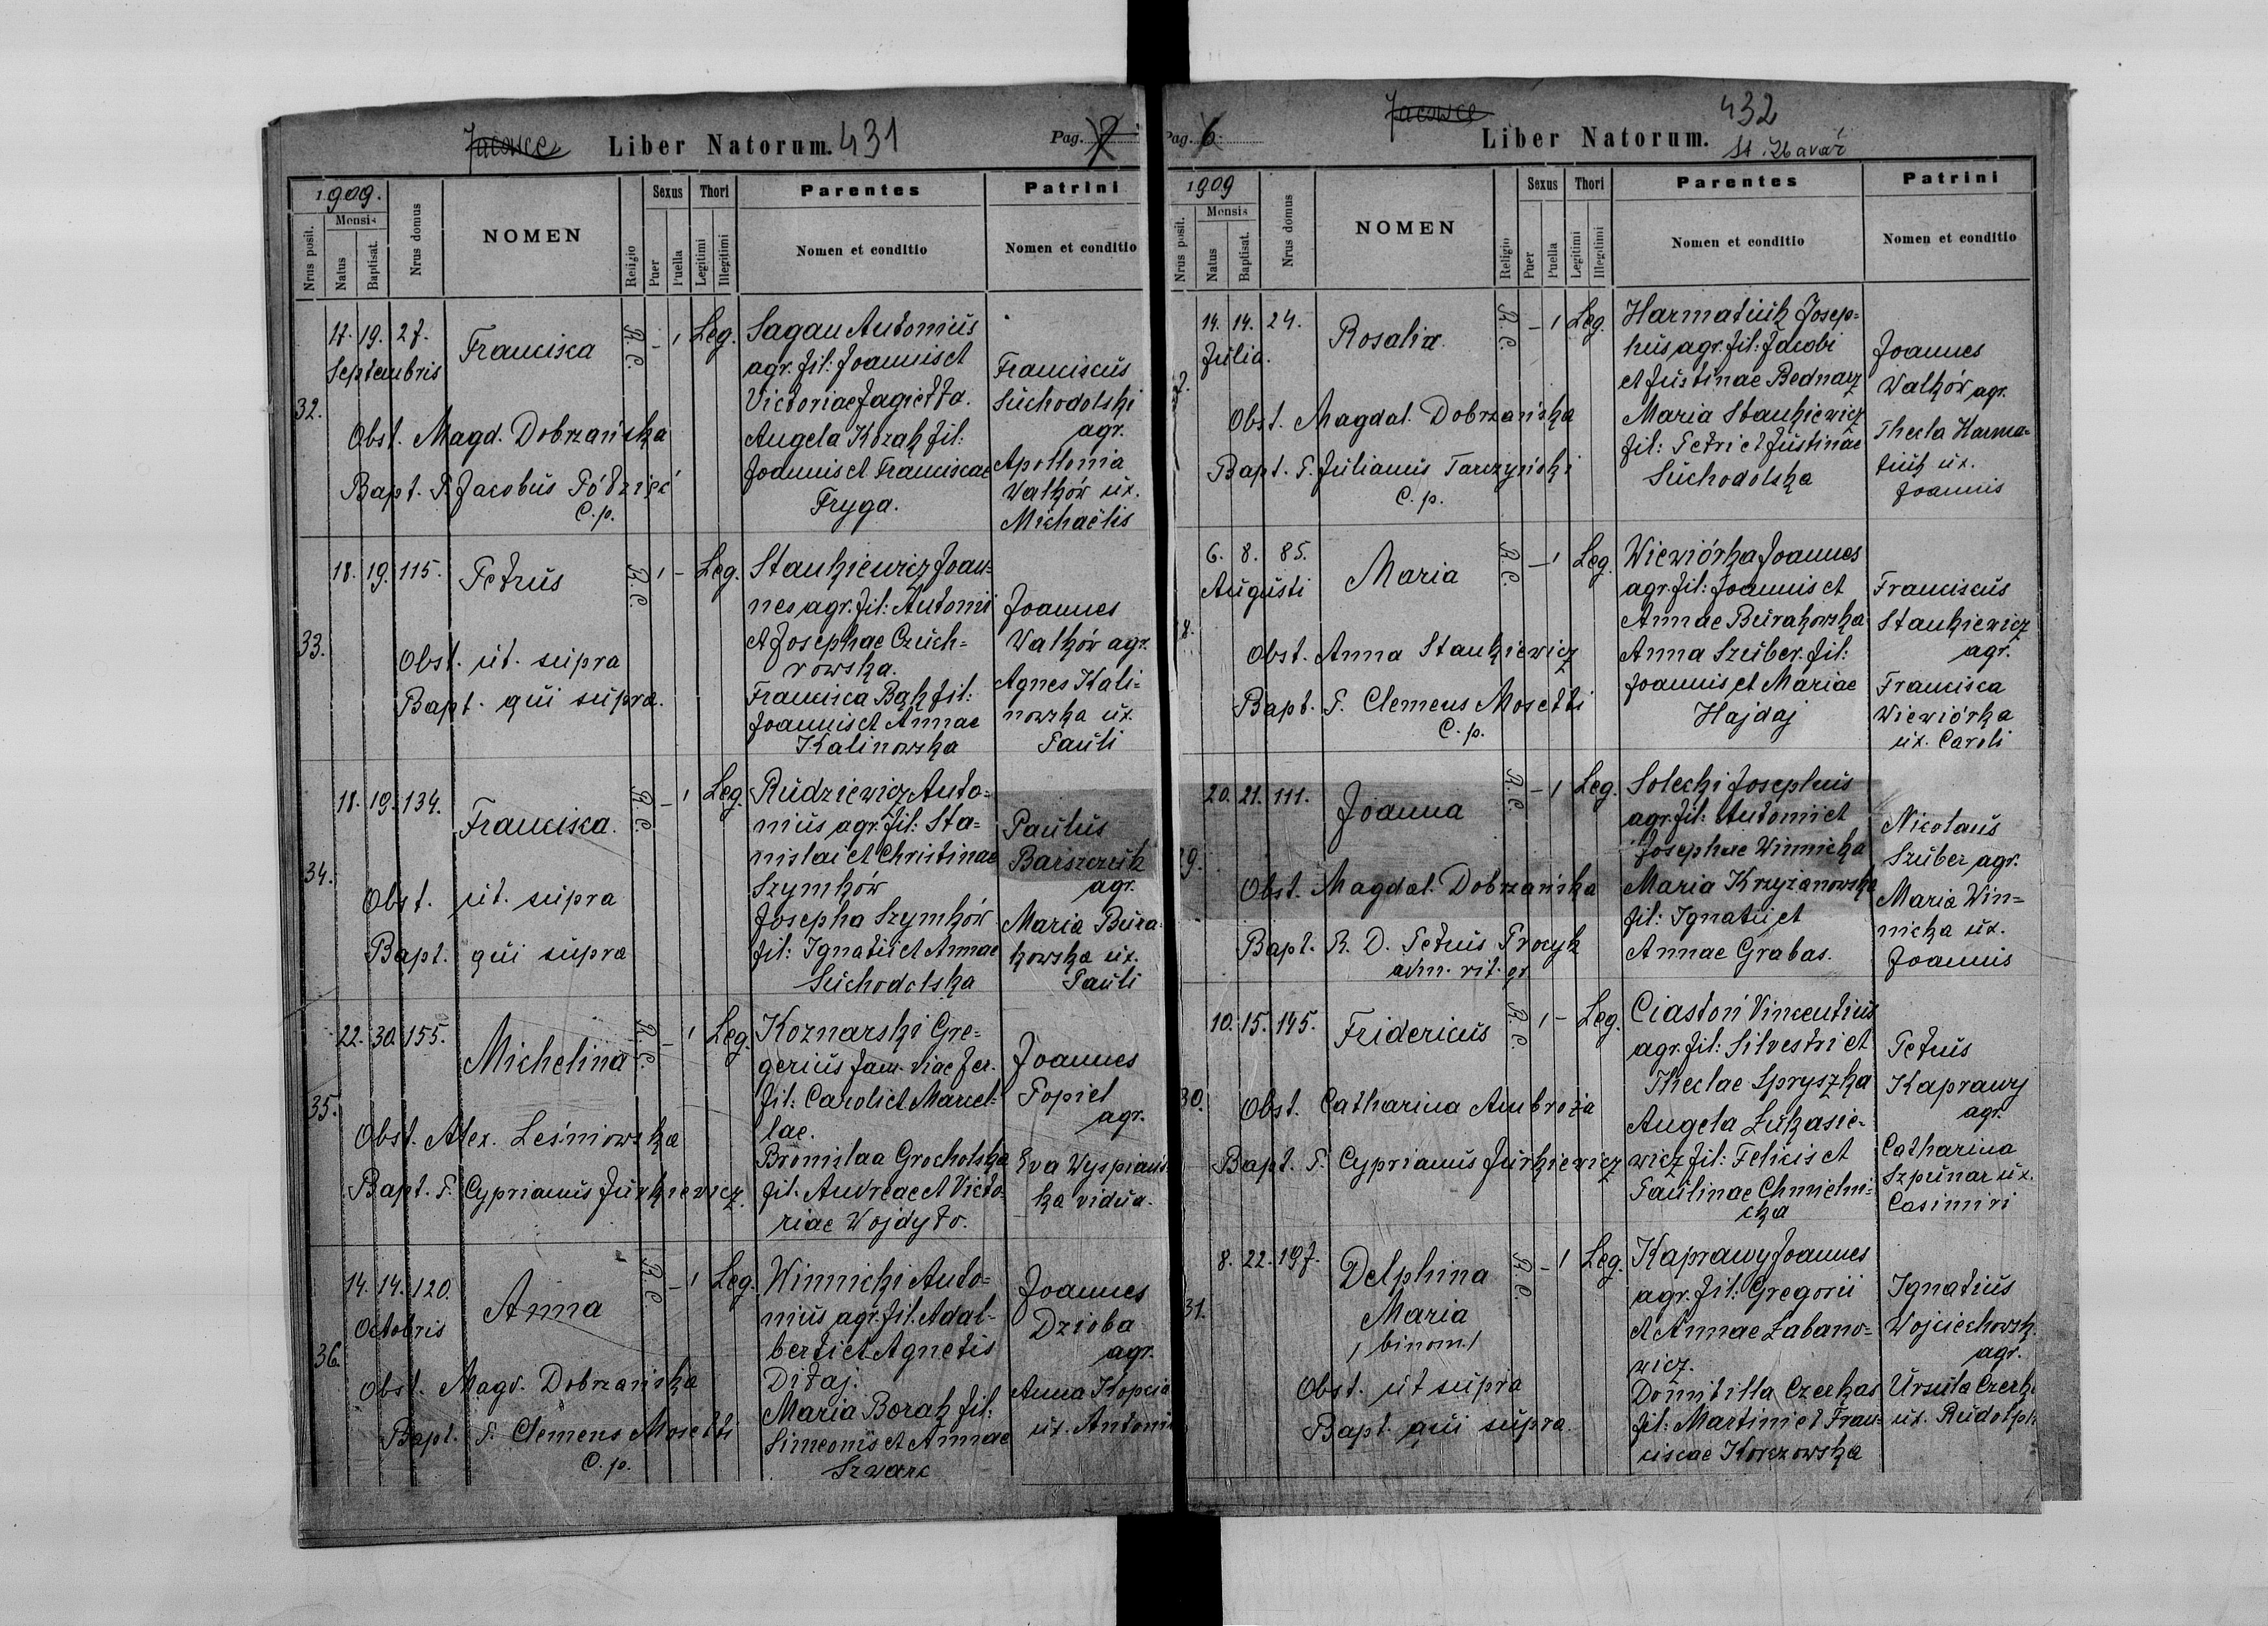 Jacowce Liber Natorum. 431 Pag. 7
1909.
Mensis
Nrus posit.
Natus
Baptisat.
Nrus domus
NOMEN
Religio
Sexus
Puer
Puella
Thori
Legitimi
Illegitimi
Parentes
Nomen et conditio
Patrini
Nomen et conditio
32.
17. 19. 27.
Septembris
Francisca
R. C. – 1 Leg.
Obst. Magd. Dobrzańska
Bapt. P. Jacobus Półzięć
C. p.
Sagan Antonius
agr. fil: Joannis et
Victoriae Jagiełła.
Angela Kozak fil:
Joannis et Franciscae
Fryga.
Franciscus
Suchodolski
agr.
Apollonia
Walków ux.
Michaëlis
33.
18. 19. 115.
Petrus
R. C. 1 – Leg.
Obst. ut. supra
Bapt. qui supra.
Stankiewicz Joan=
nes agr. fil: Antonii
et Josephae Czuch=
rowska.
Francisca Bąk fil:
Joannis et Annae
Kalinowska
Joannes
Walków agr.
Agnes Kali=
nowska ux.
Pauli
34.
18. 19. 134.
Francisca.
R. C. – 1 Leg.
Obst. ut. supra
Bapt. qui supra
Rudziewicz Anto=
nius agr. fil: Sta=
nislai et Christinae
Szymków
Josepha Szymków
fil: Ignatii et Annae
Suchodolska
Paulus
Barszczuk
agr.
Maria Bura=
kowska ux.
Pauli
35.
22. 30. 155.
Michelina
R. C. – 1 Leg.
Obst. Alex. Leśniowska
Bapt. P. Cyprianus Jurkiewicz.
Koznarski Gre=
gerius fam. viae fer.
fil: Caroli et Marcel=
lae.
Bronislaa Grocholska
fil. Andreae et Victo=
riae Wojdyło.
Joannes
Popiel
agr.
Eva Wyspiańs=
ka vidua.
36.
14. 14. 120.
Octobris
Anna
R. C. – 1 Leg.
Obst. Magd. Dobrzańska
Bapt. P. Clemens Mosetti
C. p.
Winnicki Anto=
nius agr. fil. Adal=
berti et Agnetis
Ditaj.
Maria Borak fil:
Simeonis et Annae
Szwarc
Joannes
Dzioba
agr.
Anna Kopcia
ux. Antonii
Pag. 6 Jacowce Liber Natorum. 432
St. Zbaraż
1909
Mensis
Nrus posit.
Natus
Baptisat.
Nrus domus
NOMEN
Religio
Sexus
Puer
Puella
Thori
Legitimi
Illegitimi
Parentes
Nomen et conditio
Patrini
Nomen et conditio
7.
14. 14. 24.
Julia.
Rosalia.
R. C. – 1 Leg.
Obst. Magdal. Dobrzańska
Bapt. P. Julianus Tarczyński
C. p.
Harmatiuk Josep=
hus agr. fil: Jacobi
et Justinae Bednarz
Maria Stankiewicz
fil: Petri et Justinae
Suchodolska
Joannes
Walków agr.
Thecla Harma=
tiuk ux.
Joannis
8.
6. 8. 85.
Augusti
Maria
R. C. – 1 Leg.
Obst. Anna Stankiewicz
Bapt. P. Clemens Mosetti
C. p.
Wiewiórka Joannes
agr. fil: Joannis et
Annae Burakowska
Anna Szuber. fil:
Joannis et Mariae
Hajdaj
Franciscus
Stankiewicz
agr.
Francisca
Wiewiórka
ux. Caroli
9.
20. 21. 111.
Joanna
R. C. – 1 Leg.
Obst. Magdal. Dobrzańska
Bapt. R. D. Petrus Procyk
adm. rit. gr.
Solecki Josephus
agr. fil: Antonii et
Josephae Winnicka
Maria Krzyżanowska
fil: Ignatii et
Annae Grabas.
Nicolaus
Szuber agr.
Maria Win=
nicka ux.
Joannis
30.
10. 15. 145.
Fridericus
R. C. 1 – Leg.
Obst. Catharina Ambroża
Bapt. P. Cyprianus Jurkiewicz
Ciastoń Vincentius
agr. fil: Silvestri et
Theclae Spryszka
Angela Łukasie=
wicz fil: Felicis et
Paulinae Chmielni=
cka
Petrus
Kaprawy
agr.
Catharina
Szpunar ux.
Casimiri
31.
8. 22. 197.
Delphina
Maria
/ binom. /
R. C. – 1 Leg.
Obst. ut supra
Bapt. qui supra.
Kaprawy Joannes
agr. fil: Gregorii
et Annae Łabano=
wicz.
Domitilla Czerkas
fil: Martini et Fran=
ciscae Korczowska
Ignatius
Wojciechowsk
agr.
Ursula Czerk
ux. Rudolph